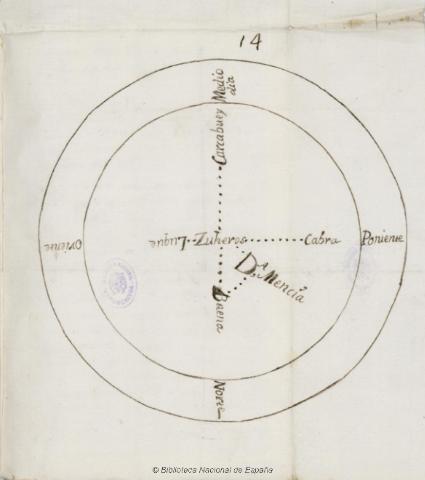 14
Medio
dia
Carcabuey
Oriente
Luque
Zuheros
Cabra
Poniente
D.ª Mencia
Baena
Norte
© Biblioteca Nacional de España